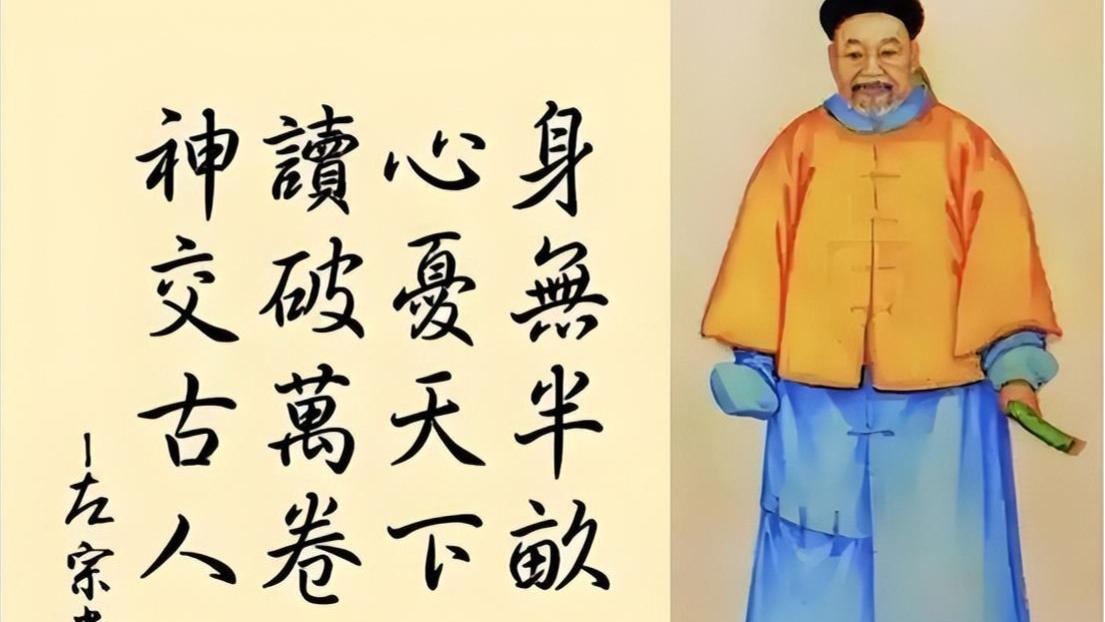 身無半畝
心憂天下
讀破萬卷
神交古人
—左宗